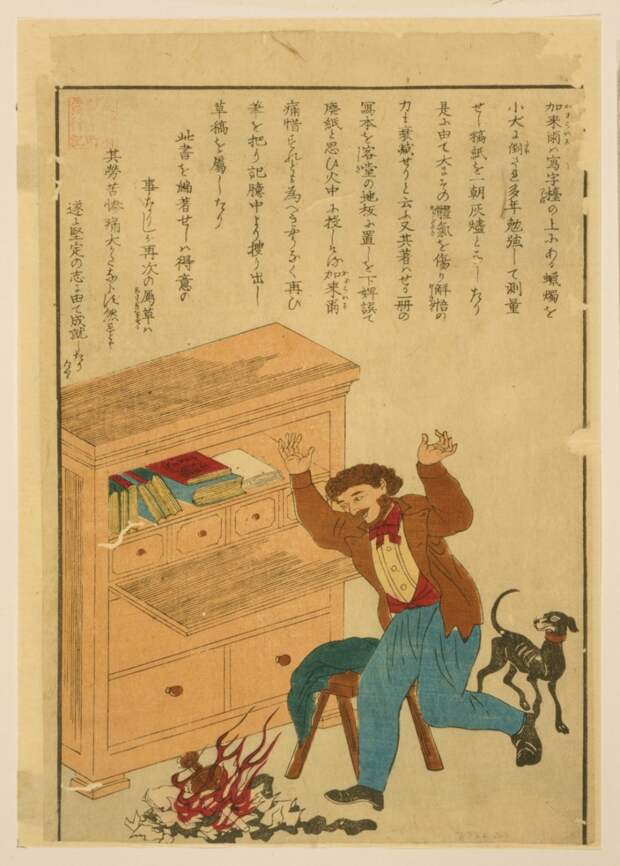 加来爾ハ寫字檯の上にある蝋燭を
小犬に倒され多年勉強して測量
せし稿紙を一朝灰燼となしたり
是に由て大にその體氣を傷り解悟の
力も衰減せりと云ふ又其著ハせる一冊の
寫本を客堂の地板に置しを下婢誤て
廢紙と思ひ火中に投しける加来爾
痛惜すれども為べきやうなく再び
筆を把り記臆中より搜り出し
草稿を屬したり
此書を編著せしハ得意の
事なりしが再次の屬草ハ
其勞苦惨痛大かたならず然れども
遂に堅定の志に由て成就したり